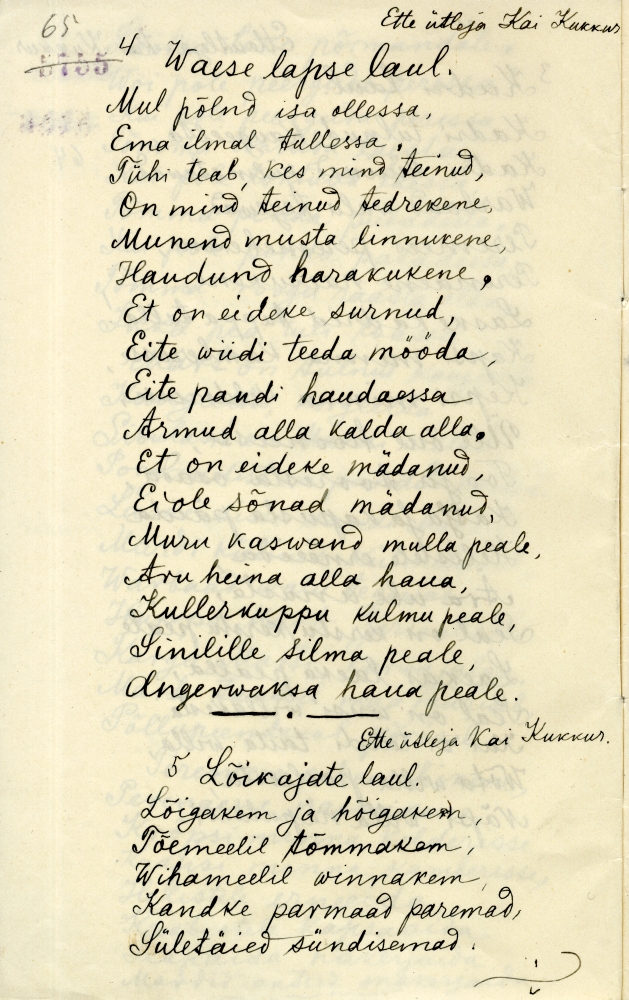 65
Ette ütleja Kai Kukkur
4 Waese lapse laul.
Mul põlnd isa ollessa,
Ema ilmal tullessa.
Tühi teab, kes mind teinud,
On mind teinud tedrekene,
Munend musta linnukene,
Haudund harakukene.
Et on eideke surnud,
Eite wiidi teeda mööda,
Eite pandi haudaessa
Armud alla kalda alla.
Et on eideke mädanud,
Ei ole sõnad mädanud,
Muru kaswand mulla peale,
Aru heina alla haua,
Kullerkuppu kulmu peale,
Sinilille silma peale,
Angerwaksa haua peale.
Ette ütleja Kai Kukkur.
5 Lõikajate laul.
Lõigakem ja hõigakem,
Tõemeelil tõmmakem,
Wihameelil winnakem,
Kandke parmaad paremad,
Sületäied sündisemad.